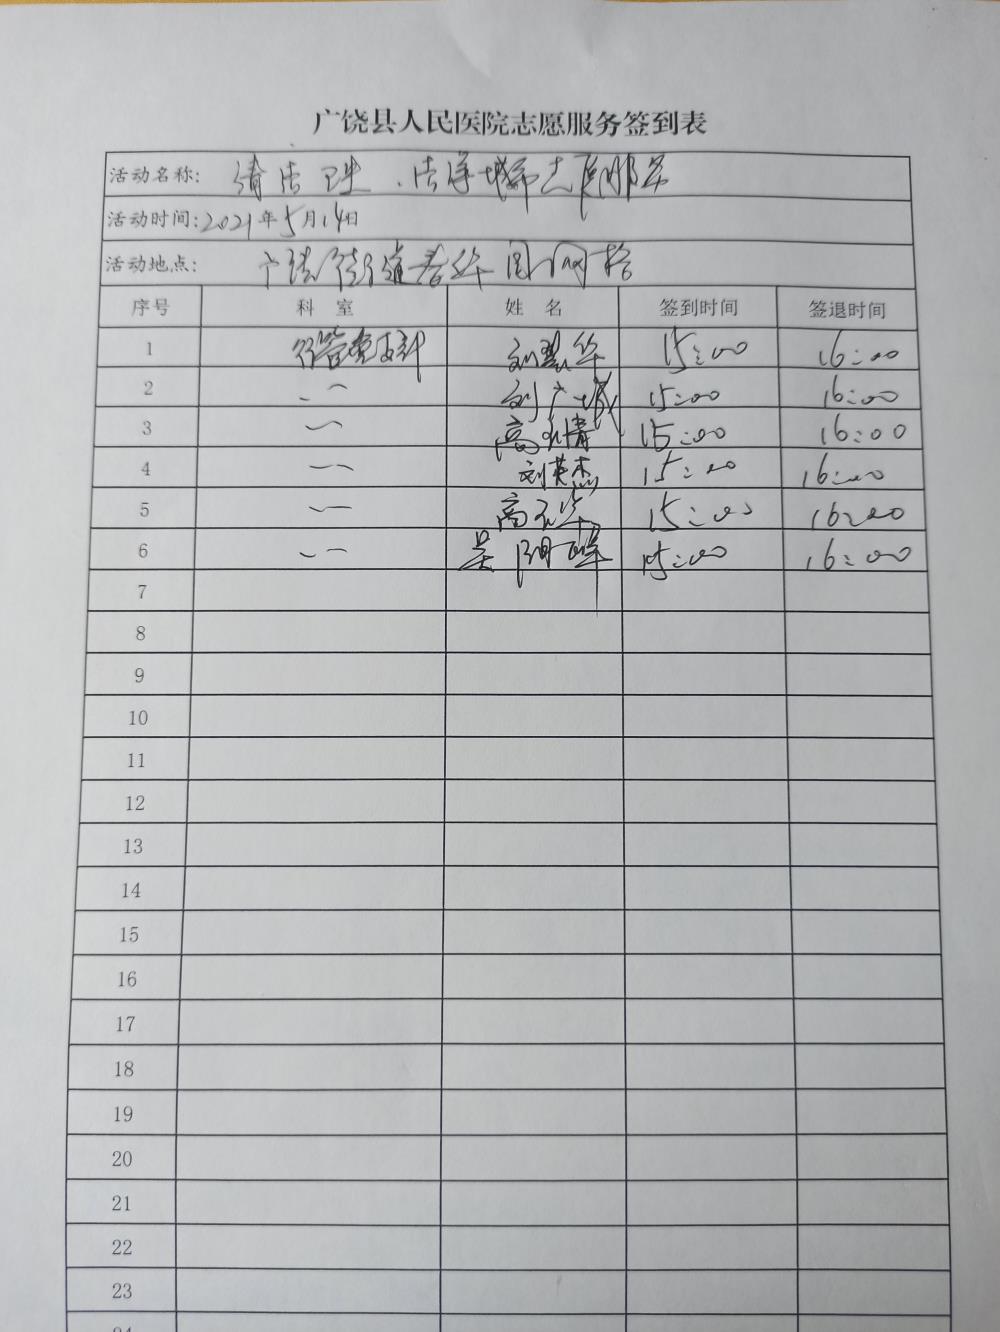 广饶县人民医院志愿服务签到表
活动名称: 清洁卫生、洁净城市志愿服务
活动时间: 2021年5月14日
活动地点: 广饶街道春华园网格
序号 科室 姓名 签到时间 签退时间
1 行管党支部 刘慧华 15:00 16:00
2 〃 刘广城 15:00 16:00
3 〃 高 倩 15:00 16:00
4 〃 刘英杰 15:00 16:00
5 〃 高 华 15:00 16:00
6 〃 吴阳峰 15:00 16:00
7
8
9
10
11
12
13
14
15
16
17
18
19
20
21
22
23